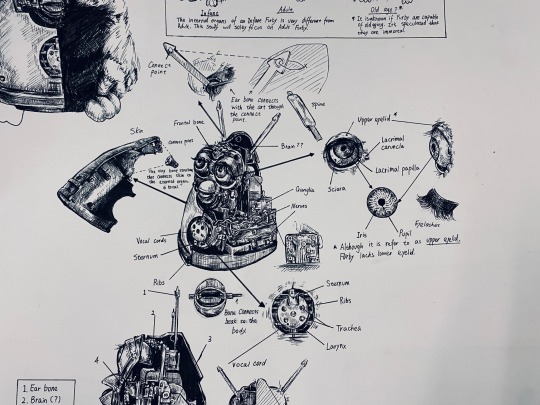 Infans
Adule
Old age? *
The internal organs of an Infans Furby is very different from
Adule. This study will solely focus on Adule Furby.
* It is unknown if Furby are capable
of old aging. It is speculated that
they are immortal.
Connect
point
Ear bone connects
with the ear through
the connect
point.
spine
Frontal bone
Brain??
Skin
connect point
Upper eyelid *
Lacrimal
caruncla
Lacrimal papilla
Sclara
Ganglia
Nerves
Iris
Pupil
Eyelashes
* Although it is refer to as upper eyelid,
Furby lacks lower eyelid.
Vocal cords
Sternum
Ribs
Bone connects
beak to the
body
Sternum
Ribs
Trachea
Larynx
Vocal cord
1
2
3
4
1. Ear bone
2. Brain (?)